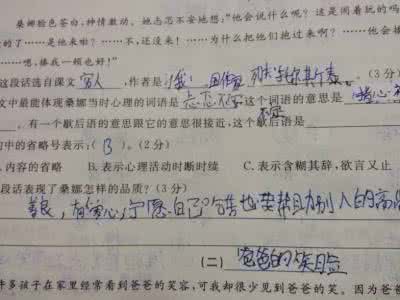 桑娜脸色苍白,神情激动。她忐忑不安地想:"他会说什么呢?这是闹着玩的吗
的了……是他来啦?……不,还没来!……为什么把他们抱过来啊?……他会揍
……嗯,揍我一顿也好!"
这段话选自课文 穷人 ,作者是(俄) 列夫 托尔斯泰。(3分)
文中最能体现桑娜当时心理的词语是 忐忑不安 这个词语的意思是
,有一个歇后语的意思跟它的意思很接近,这个歇后语是
中的省略号表示:( B )。(2分)
.内容的省略 B.表示心理活动时断时续 C.表示含糊其辞,欲言又止
段话表现了桑娜怎样的品质?(3分)
善良,有爱心,宁愿自己 也要帮助别人的高
(二) 爸爸的笑脸
许多孩子在家里经常看到爸爸的笑容,可我却很少见到爸爸的笑。因为爸爸